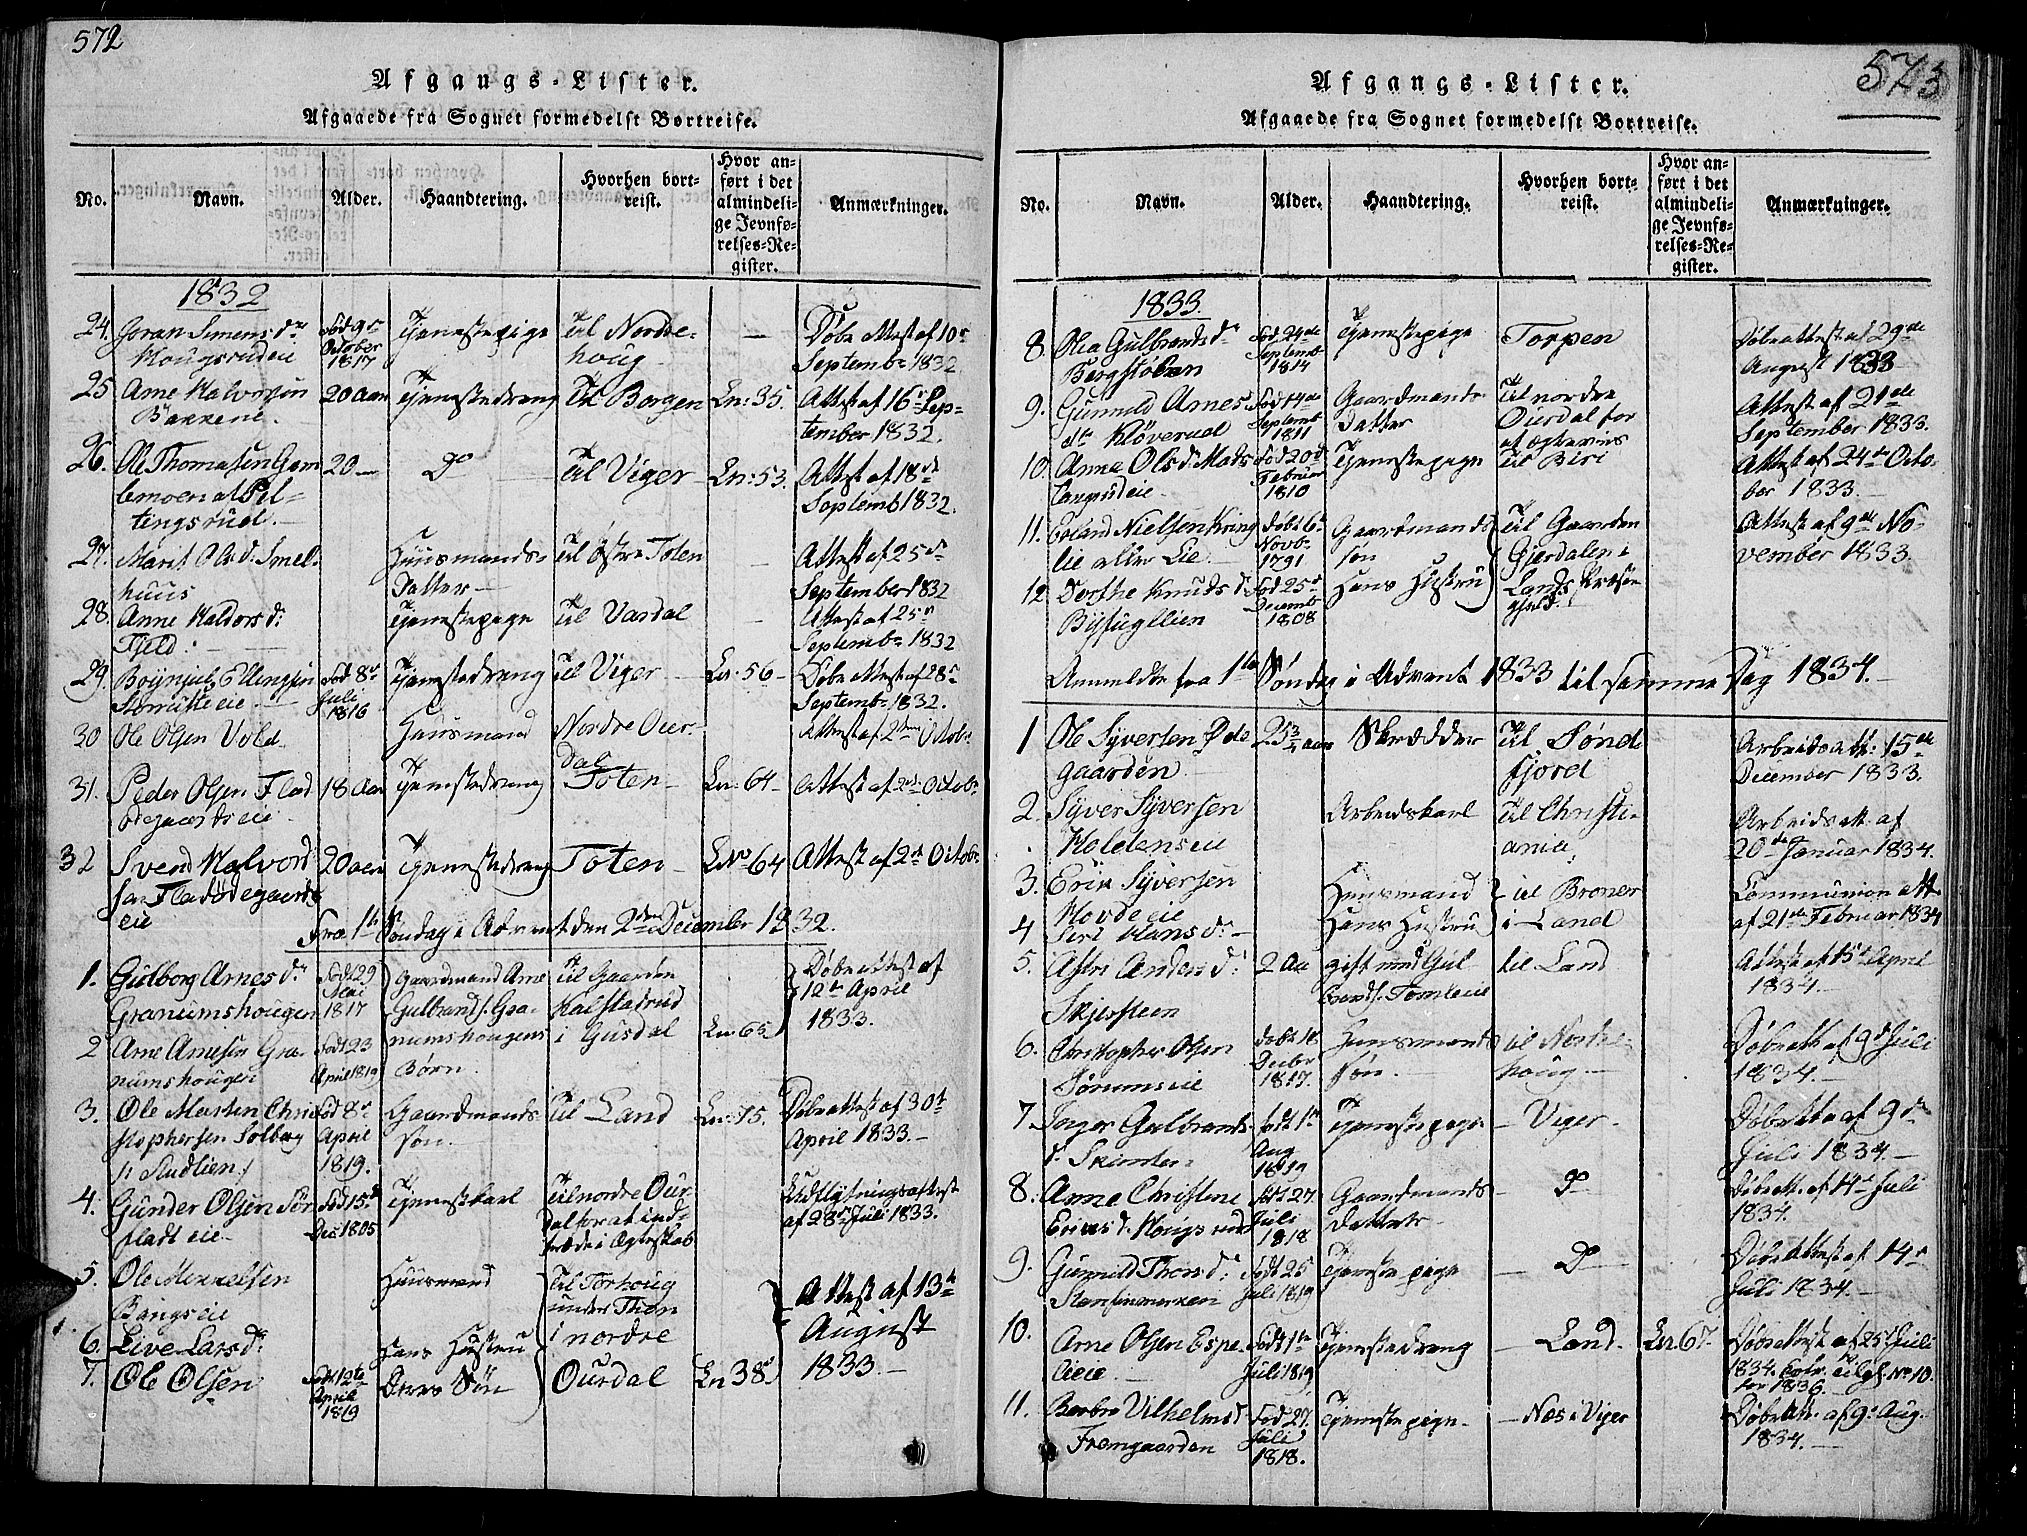 572
Afgangs-Lister.
Afgaaede fra Sognet formedelst Bortreise.
No. Navn. Alder. Haandtering. Hvorhen bortreist. Hvor anført i det almindelige Jevnførelses-Register. Anmærkninger.
1832
24. Goran Simens dr Hougsrudeie Fød 9de October 1817 Tjenestepige Til Nordrehoug — Døbe Attest af 10de Septembr 1832
25 Arne Halvorsen Bakkene. 20 Aar Tjenestedreng Til Borgen Ln: 35. Attest af 16de September 1832.
26. Ole Thomasen 20 — Do Til Viger Ln: 53. Attest af 18de Septemb 1832.
27. Marit Ols d. Smelhuus Huusmands-Datter — Til Østre Toten — Attest af 25de September 1832
28. Anne Haldors d: Fjeld. Tjenestepige Til Vardal — Attest af 25de Septembr 1832
29. Ellingsen eie Fød 8de Juli 1816 Tjenestedreng Til Viger Ln. 56 — Døbe Attest af 28de Septembr 1832.
30 Ole Olsen Vold Huusmand Nordre Ourdal Attest af 2den Octobr
31. Peder Olsen Fladødegaardseie 18 Aar Tjenestedreng Toten — Ln: 64 — Attest af 2de Octobr
32 Svend Halvordsen Fladødegaardseie 20 Aar Tjenestedreng Toten — LNo 64 Attest af 2de Octobr
Fra 1ste Søndag i Advent den 2den December 1832.
1. Gulborg Arnes dr Granumshougen Født 29 Mai 1817 Gaardmand Arne Gulbrands. Granumshougens Børn. Til Gaarden Kalstadrud i Gusdal Ln: 65. Døbe Attest af 12te April 1833.
2 Arne Arnesen Granumshougen Født 23 April 1819
3. Ole Morten Christophersen Solberg Fød 8de April 1819. Gaardmandssøn. Til Land Ln: 15. Døbe attest af 30te April 1833. —
4. Gunder Olsen Sørfladt eie — Fød 15de Dec: 1805 Tjenestkarl Til nordre Ourdal for at indtræde i Egteskab Udflytningsattest af 28de Juli 1833.
5. Ole Mikkelsen Bangseie Huusmand Til Torhoug under Thon i nordre Ourdal Attest af 13de August 1833 —
6. Live Lars dr. Hans Hustru
7. Ole Olsen Født 12te April 1819 Deres Søn Ln 38
573
Afgangs-Lister.
Afgaaede fra Sognet formedelst Bortreise.
No. Navn. Alder. Haandtering. Hvorhen bortreist. Hvor anført i det almindelige Jevnførelses-Register. Anmærkninger.
1833.
8. Olea Gulbrands dr Fød 24de Septembr 1814 Tjenestepige Torpen Døbe attest af 29de August 1833
9. Gunnild Arnes dtr Kløverud Fød 14de Septembr 1811 Gaardmands Datter Til nordre Ourdal for at ægtevies Attest af 21de September 1833.
10. Anne Ols d. Fød 20de Februar 1810 Tjenestepige Til Biri Attest af 24de October 1833. —
11. Erland Nielsen Kringlie eller Lie — døbt 6te Novbr 1791 Gaardmands søn Til Gaarden Gjerdalen i Lands Præstegjeld. Attest af 9de November 1833.
12. Dorthe Knuds d. Fød 25de Decembr 1808 Hans Hustru
Anmeldte fra 1ste Søndag i Advent 1833 til samme Dag 1834. —
1 Ole Syversen Ødegaarden 25 3/4 aar Skrædder Til Søndfjord Arbeidsatt: 15de December 1833.
2. Syver Syversen Holdenseie Arbeidskarl Til Christiania. Arbeidsatt. af 20de Januar 1834.
3. Erik Syversen Hovdeeie Huusmand til Broner i Land Communion att. af 21de Februar 1834
4 Siri Hans dr — Hans Hustru
5. Astri Anders d. Skjerstein 2 Aa gift med Gulbrands. Tomleeie til Land Attest af 15de April 1834. —
6. Christopher Olsen Sørumseie døbt 18. Decbr 1817. Huusmands søn. — til Nordrehoug — Døbeatt. af 9de Juli 1834. —
7. Inger Gulbrands d. født 1ste Aug 1819 Tjenestepige — Viger — Døbeatt. af 9de Juli 1834. —
8. Anne Christine Eriks d. Hougsrud Født 27. Juli 1818 Gaardmands Datter — Do Døbeatt. af 14de Juli 1834.
9. Gunnild Thors d. Født 25 Juli 1819 Tjenestepige — Do Døbe Attest af 14de Juli 1834. —
10. Arne Olsen Espelieeie. Født 1ste Juli 1819 Tjenestedreng — Land. Ln. 67. Døbe attest af 25de Juli 1834. No 10. for 1836. —
11. Berbro Vilhelms d. Fremgaarden Fød 27. Juli 1818. Tjenestepige. — Næs i Viger Døbeatt. af 9de Aug. 1834. —